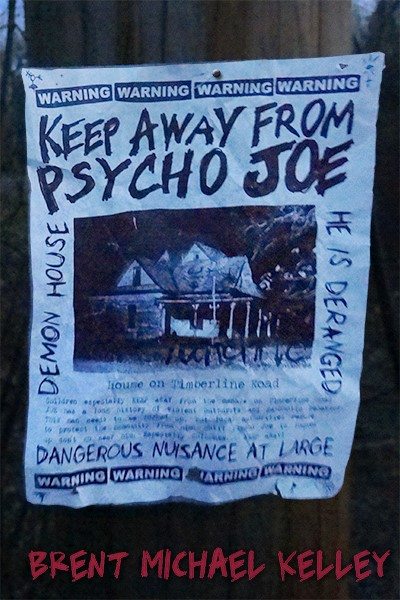 WARNING WARNING WARNING WARNING
KEEP AWAY FROM
PSYCHO JOE
DEMON HOUSE
HE IS DERANGED
House on Timberline Road
Children especially stay away from the
has a long history of violent outbursts and
This man needs to be
to protect the community from
DANGEROUS NUISANCE AT LARGE
WARNING WARNING WARNING WARNING
BRENT MICHAEL KELLEY